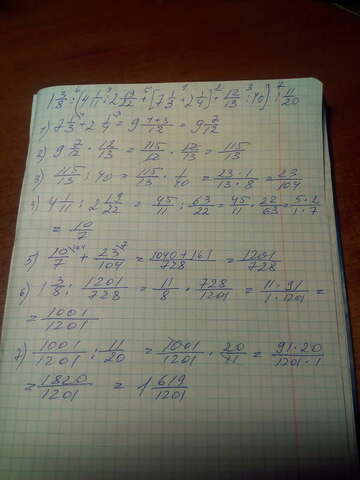 1 3/8 : (4 1/11 : 2 19/22 + [7 1/3 + 2 1/4] · 12/13 : 40) : 11/20
1) 7 1/3 + 2 1/4 = 9 4+3/12 = 9 7/12
2) 9 7/12 · 12/13 = 115/12 · 12/13 = 115/13
3) 115/13 : 40 = 115/13 · 1/40 = 23·1/13·8 = 23/104
4) 4 1/11 : 2 19/22 = 45/11 : 63/22 = 45/11 · 22/63 = 5·2/1·7
= 10/7
5) 10/7 + 23/104 = 1040+161/728 = 1201/728
6) 1 3/8 : 1201/728 = 11/8 · 728/1201 = 11·91/1·1201 =
= 1001/1201
7) 1001/1201 : 11/20 = 1001/1201 · 20/11 = 91·20/1201·1
= 1820/1201 = 1 619/1201